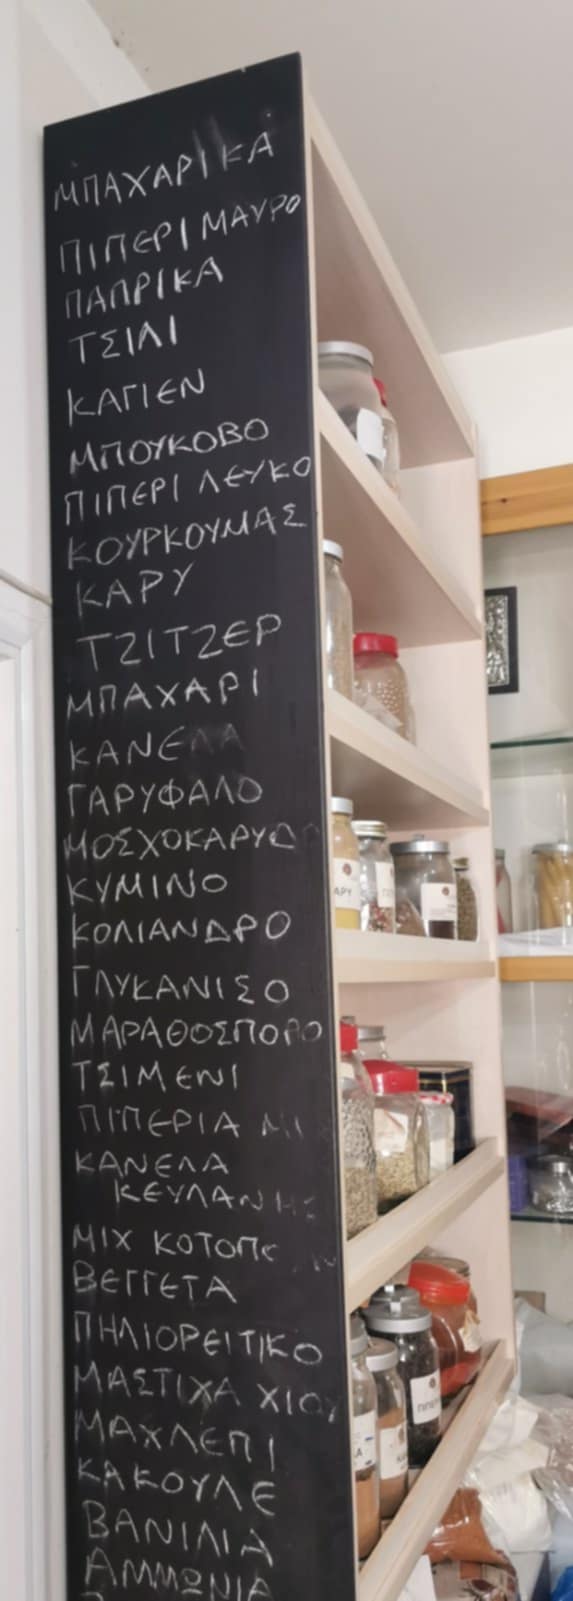 ΜΠΑΧΑΡΙΚΑ
ΠΙΠΕΡΙ ΜΑΥΡΟ
ΠΑΠΡΙΚΑ
ΤΣΙΛΙ
ΚΑΓΙΕΝ
ΜΠΟΥΚΟΒΟ
ΠΙΠΕΡΙ ΛΕΥΚΟ
ΚΟΥΡΚΟΥΜΑΣ
ΚΑΡΥ
ΤΖΙΤΖΕΡ
ΜΠΑΧΑΡΙ
ΚΑΝΕΛΑ
ΓΑΡΥΦΑΛΟ
ΜΟΣΧΟΚΑΡΥΔ
ΚΥΜΙΝΟ
ΚΟΛΙΑΝΔΡΟ
ΓΛΥΚΑΝΙΣΟ
ΜΑΡΑΘΟΣΠΟΡΟ
ΤΣΙΜΕΝΙ
ΠΙΠΕΡΙΑ
ΚΑΝΕΛΑ
ΚΕΥΛΑΝΗΣ
ΜΙΧ
ΒΕΓΓΕΤΑ
ΠΗΛΙΟΡΕΙΤΙΚΟ
ΜΑΣΤΙΧΑ ΧΙΟΥ
ΜΑΧΛΕΠΙ
ΚΑΚΟΥΛΕ
ΒΑΝΙΛΙΑ
ΑΜΜΩΝΙΑ